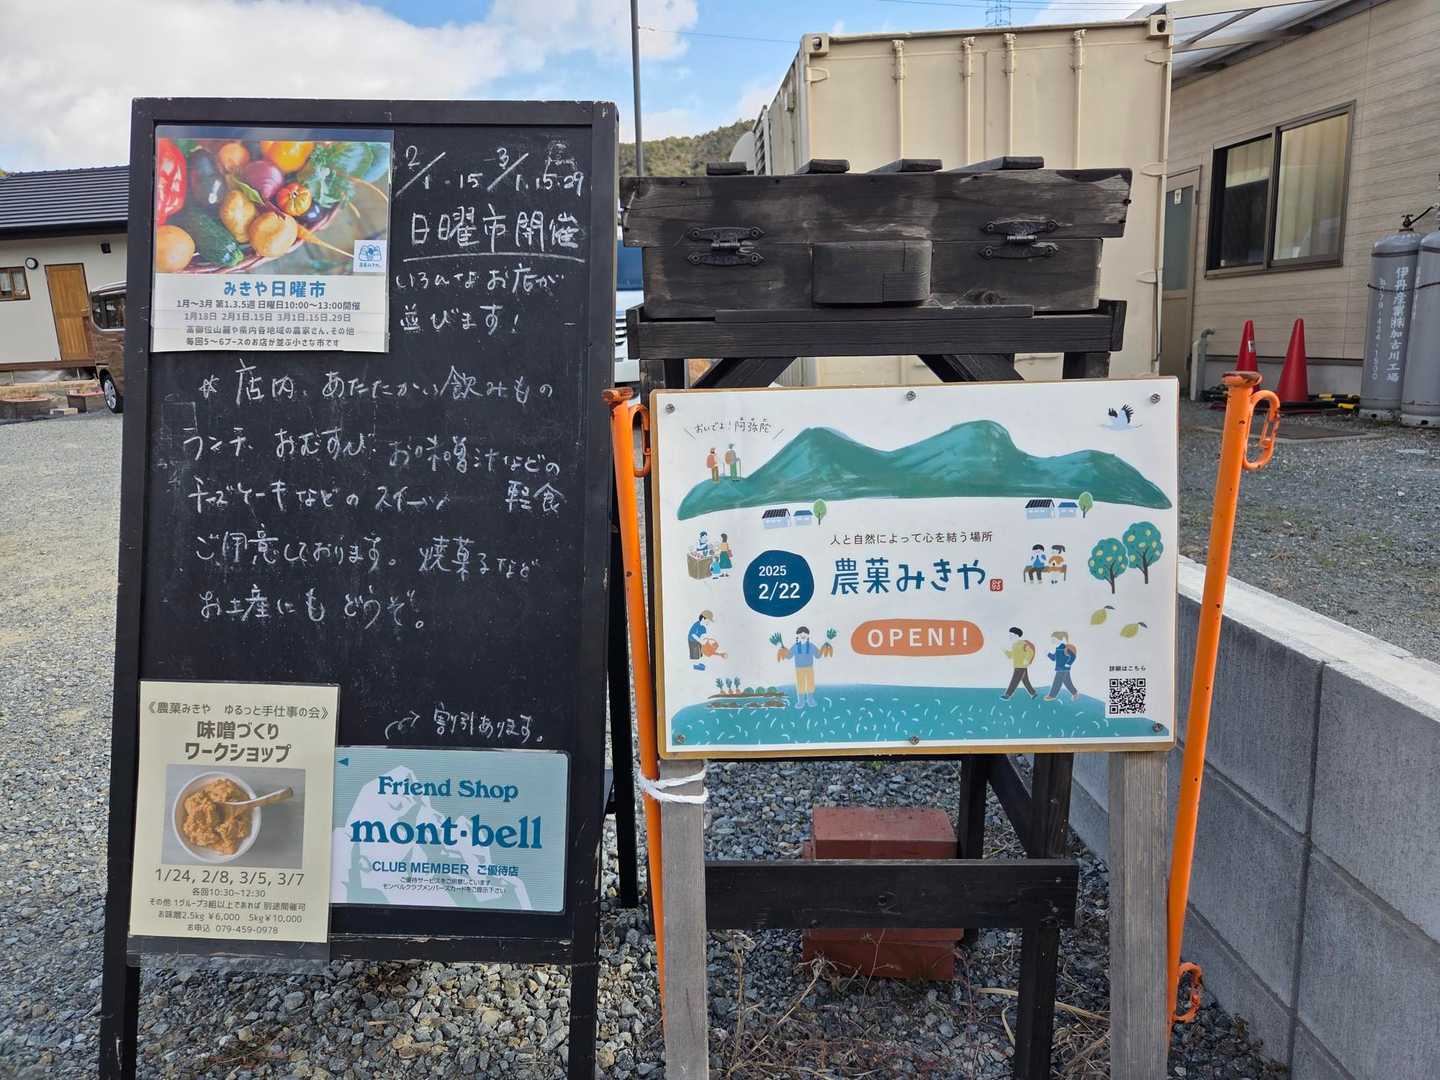 みきや日曜市
1月～3月 第1.3.5週 日曜日10:00～13:00開催
1月18日 2月1日.15日 3月1日.15日.29日
高御位山麓や県内各地域の農家さん、その他
毎回5～6ブースのお店が並ぶ小さな市です
2/1.15 3/1.15.29
日曜市開催
いろんなお店が
並びます!
店内、あたたかい飲みもの
ランチ、おむすび、お味噌汁などの
チーズケーキなどのスイーツ 軽食
ご用意しております。焼菓子など
お土産にもどうぞ。
割引あります。
《農菓みきや ゆるっと手仕事の会》
味噌づくり
ワークショップ
1/24, 2/8, 3/5, 3/7
各回10:30~12:30
その他 1グループ3組以上であれば 別途開催可
お味噌2.5kg ¥6,000 5kg¥10,000
お申込 079-459-0978
Friend Shop
mont-bell
CLUB MEMBER ご優待店
ご優待サービスをご用意しています。
モンベルクラブメンバーズカードをご提示下さい
おいでよ!阿弥陀
人と自然によって心を結う場所
2025
2/22
農菓みきや
OPEN!!
詳細はこちら
伊丹産業㈱加古川工場